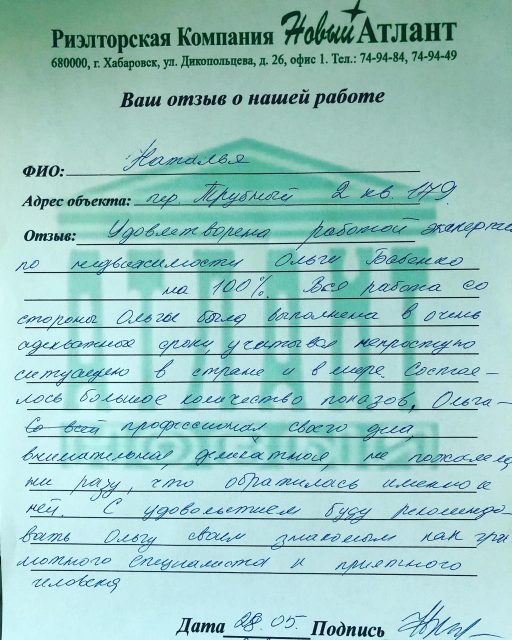 Риэлторская Компания Новый Атлант
680000, г. Хабаровск, ул. Дикопольцева, д. 26, офис 1. Тел.: 74-94-84, 74-94-49
Ваш отзыв о нашей работе
ФИО: Наталья
Адрес объекта: пер. Трубный 2 кв. 179
Отзыв: Удовлетворена работой эксперта
по недвижимости Ольги Бабенко
на 100%. Вся работа со
стороны Ольги была выполнена в очень
адекватные сроки, учитывая непростую
ситуацию в стране и в мире. Состоя-
лось большое количество показов. Ольга-
профессионал своего дела,
внимательная, деликатная, не пожалела
ни разу, что обратилась именно к
ней. С удовольствием буду рекомендо-
вать Ольгу своим знакомым как гра-
мотного специалиста и приятного
человека
Дата 28.05. Подпись
АТЛАНТ